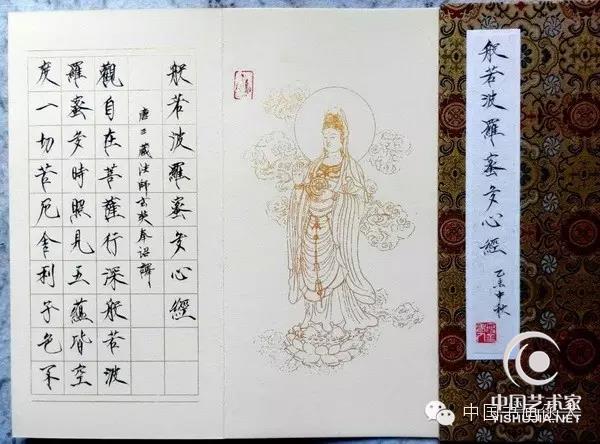 般若波羅蜜多心經
乙未中秋
般若波羅蜜多心經
唐三藏法師玄奘奉詔譯
觀自在菩薩行深般若波
羅蜜多時照見五蘊皆空
度一切苦厄舍利子色不
中国艺术家
YISHUJIA.NET
中国书画